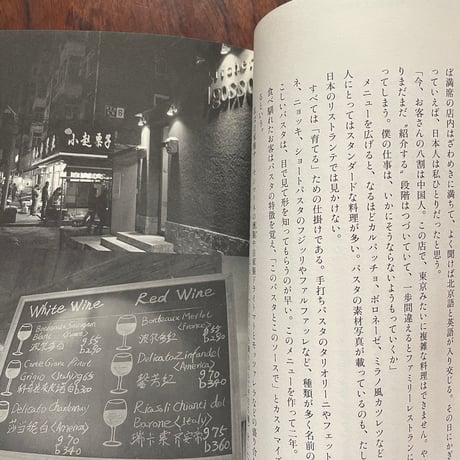 ぼ満席の店内はざわめきに満ちて、よく聞けば北京語と英語が入り交じる。その日にかぎ
っていえば、日本人は私ひとりだったと思う。
「今、お客さんの八割は中国人。この店で、東京みたいに複雑な料理はできません。や
りまだまだ〝紹介する〟段階はつづいていて、一歩間違えるとファミリーレストランに
ってしまう。僕の仕事は、いかにそうならないようもっていくか」
メニューを広げると、なるほどカルパッチョ、ボロネーゼ、ミラノ風カツレツなど
人にとってはスタンダードな料理が多い。パスタの素材写真が載っているのも、たし
日本のリストランテでは見かけない。
すべては「育てる」ための仕掛けである。手打ちパスタのタリオリーニやフェット
ネ、ニョッキ、ショートパスタのフジッリやファルファッレなど、種類が多く名前の
こしいパスタは、目で見て形を知ってもらうのが早い。このメニューを作って二年。
食べ馴れたお客はパスタの特徴を覚え、「このパスタとこのソースで」とカスタマイ
るという。
小赵栗子
White Wine
Red Wine
Bordeaux Merlot
(France)
g 75
b 290
Delicato Zinfandel
(America)
g 70
b 340
Riasoli Chianti del
Barone (Italy)
g 75
b 360
Delicato Chardonnay
(America)
g 70
b 340